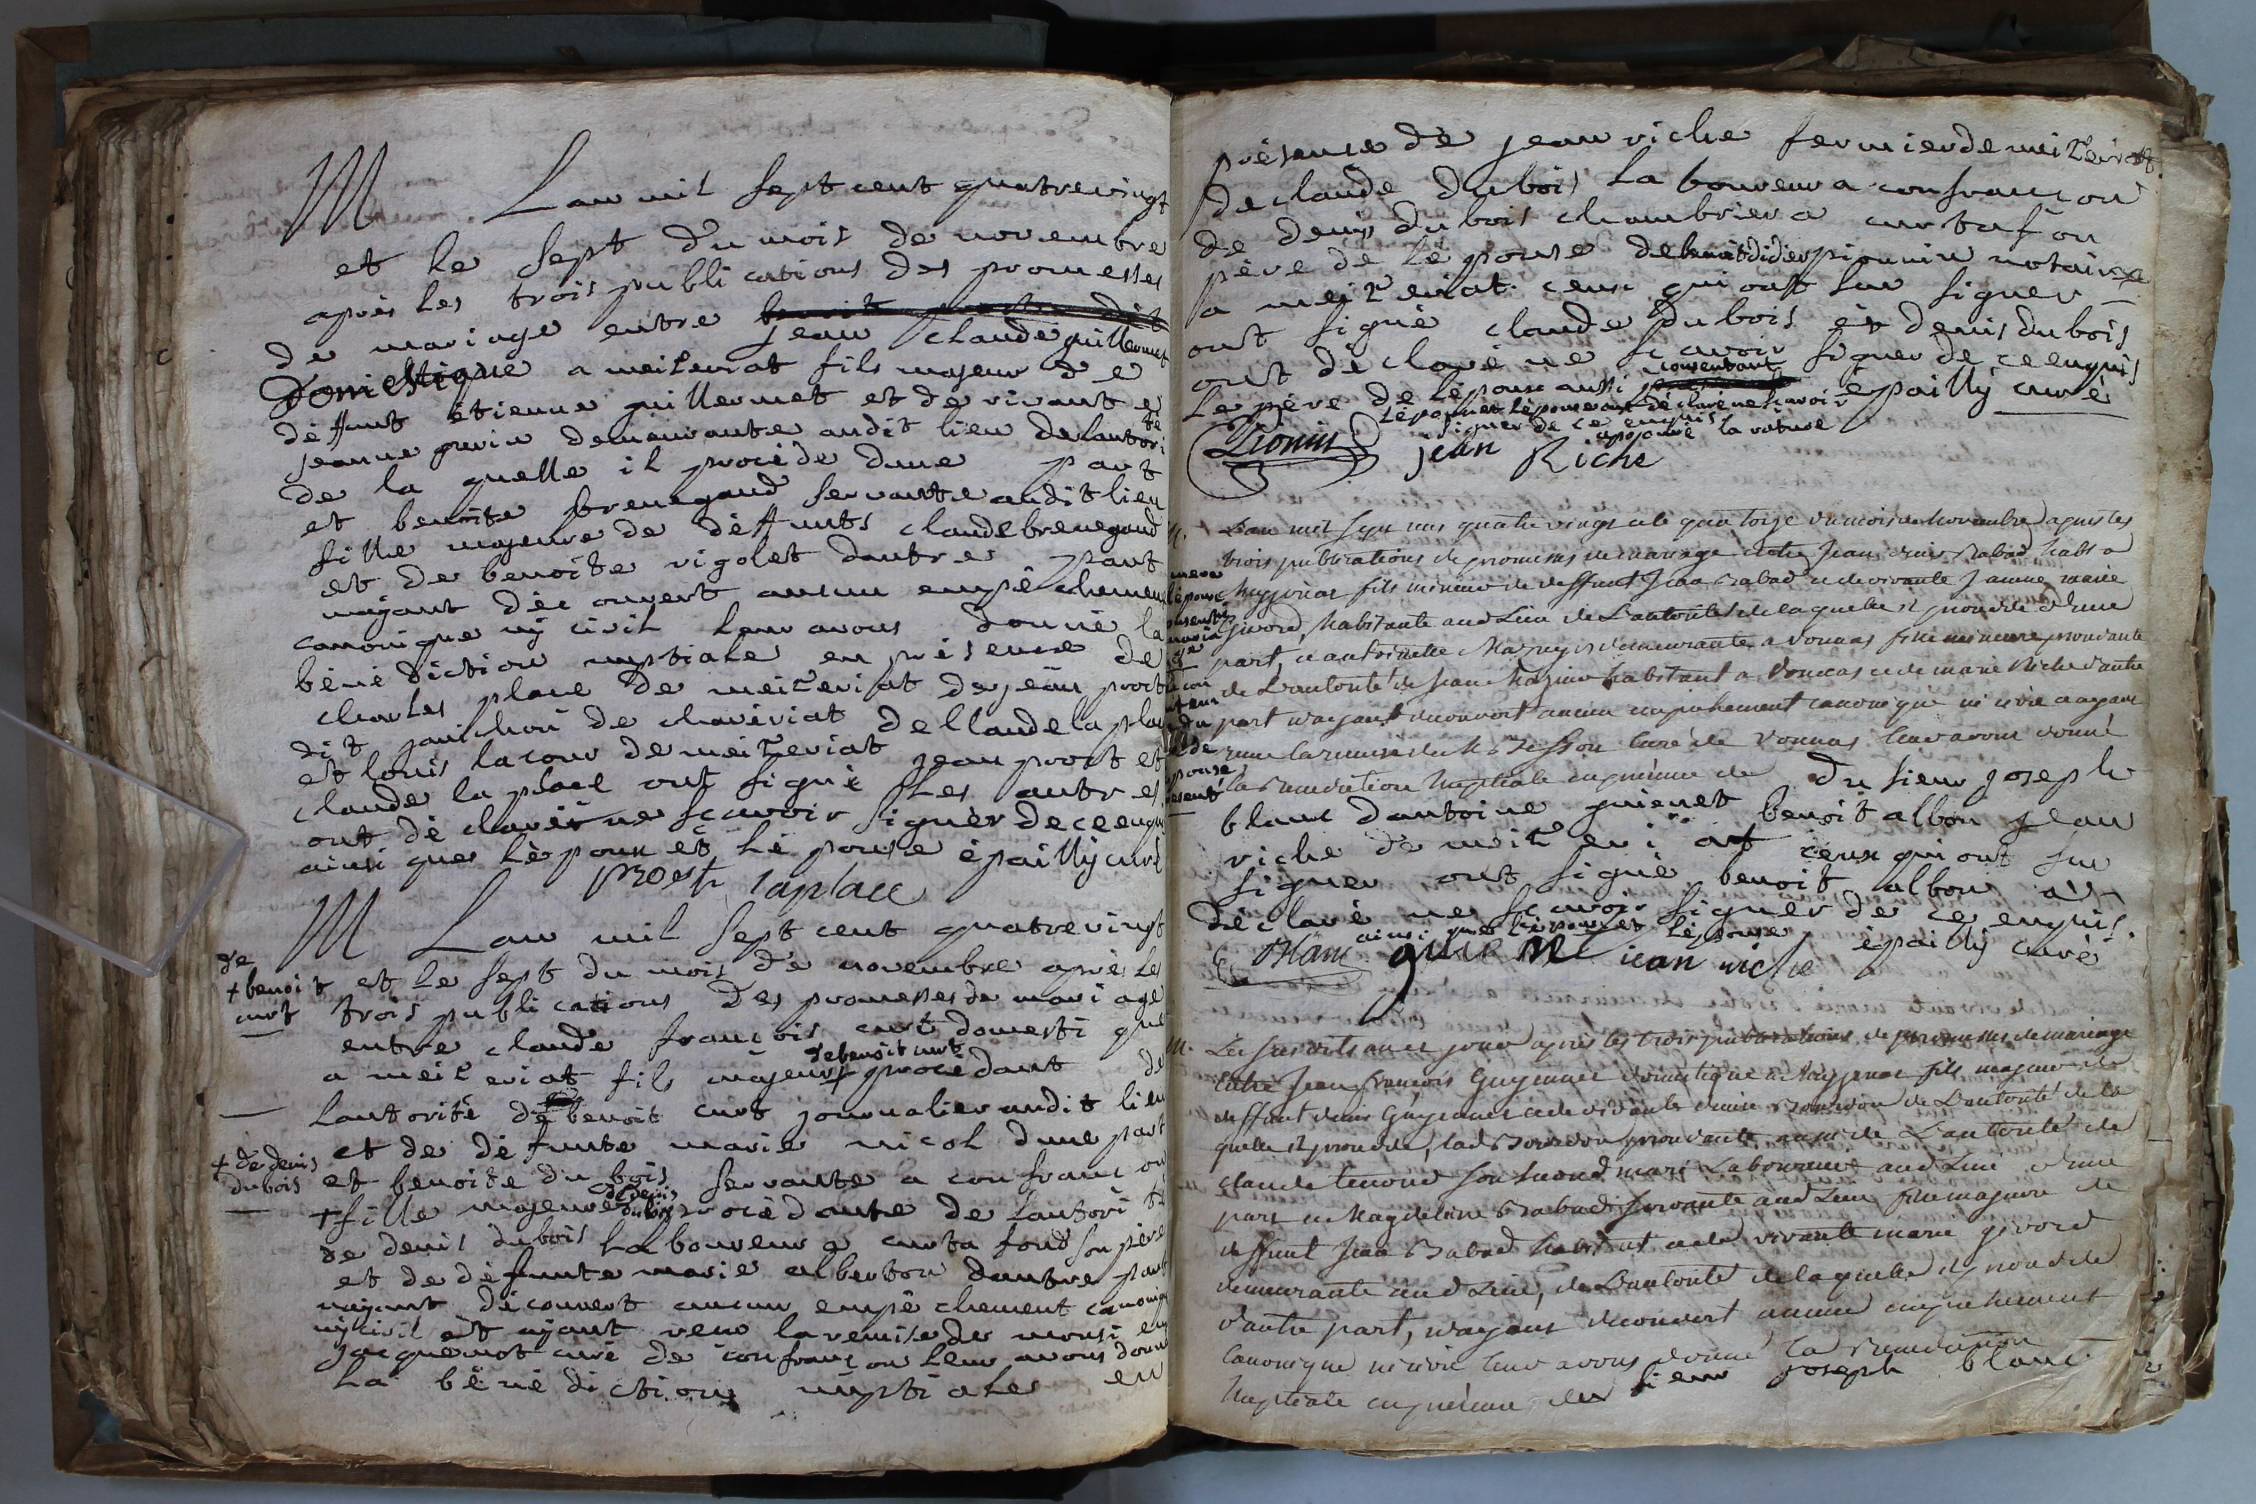 M Lan mil sept cent quatrevingt
et le sept du mois de novembre
après les trois publications des promesses
de mariage entre
jean claude guillermet
Domestique a meizeriat fils majeur de
deffunt etienne guillermet et de vivante
jeanne gerin demeurante audit lieu de lautorité
de la quelle il procède dune part
et benoite brenegaud servante audit lieu
fille majeure de deffunts claude brenegaud
et de benoite rigolet dautre part
nayant découvert aucun empêchement
canonique ny civil leur avons donné la
bénédiction nuptiale en présence de
charles place de meizeriat de jean prost
dit janichon de chavériat de claude la place
et louis lacour de meizeriat jean prost et
claude la place ont signé les autres
ont déclaré ne scavoir signer de ce enquis
ainsi que lépoux et lé pouse épailly curé
prost laplace
M Lan mil sept cent quatrevingt
et le sept du mois de novembre après les
trois publications des promesses de mariage
entre claude françois curt domestique
de
+ benoit
curt
de benoit curt
a meizeriat fils majeur + procedant de
lautorité de benoit curt journalier audit lieu
et de défunte marie nicol dune part
+ de denis
dubois
et benoite dubois servante a confrançon
de denis
dubois
+ fille majeure procédante de lautorité
de denis dubois laboureur a curtafond son père
et de défunte marie alberton dautre part
nayant découvert aucun empêchement canonique
ny civil et ayant veu la remise de monsieur
jacquemot curé de confrançon leur avons donné
la bénédiction nuptiale en
présence de jean riche fermier de meizeriat
de claude dubois laboureur a confrançon
de denis dubois chambrier a curtafon
père de lépouse de benoit didier pionin notaire
a meizeriat ceux qui ont su signer
ont signé claude dubois et denis dubois
ont déclaré ne scavoir signer de ce enquis
consentant
le père de lépouse aussi epailly curé
lépoux et lépouse ont déclaré ne scavoir
signer de ce enquis
approuvé la rature
Pionin jean Riche
M. Lan mil sept cens quatre vingt et le quatorze du mois de novembre apres les
trois publications de promesses de mariage entre Jean denis Rabad habt a
Mezeriat fils mineur de deffunt Jean Rabad et de vivante Jeanne marie
Givord, habitante aud Lieu de Lautorité de laquelle il procede d'une
part, et antoinette demeurante a vonnas fille mineure procedante
de Lautorité de Jean habitant a Vonnas et de marie Riche d'autre
part nayant decouvert aucun empechement canonique ni civil et ayant
veu la remise de Mr curé de Vonnas leur avons donné
la Benediction Nuptiale en présence de du sieur joseph
blanc dantoine guienet benoit albon jean
riche de meizeriat ceux qui ont su
signer ont signé benoit albon a
déclaré ne scavoir signer de ce enquis.
ainsi que lépoux et lépouse épailly curé
Blanc guienet jean riche
M. Les susdits an et jour apres les trois publications de promesses de mariage
entre Jean françois Guyennet domestique a Mezeriat fils majeur de
deffunt denis Guyennet et de vivante denise Bourdon de Lautorité de la
quelle il procede, lad Bourdon procedante aussi de L'autorité de
claude tenond son second mari Laboureur aud Lieu d'une
part et Magdelaine Rabad servante aud Lieu fille majeure de
deffunt Jean Rabad habitant et de vivante marie givord
demeurante aud Lieu, de Lautorité de laquelle elle procede
d'autre part, nayant decouvert aucun empechement
Canonique ni civil leur avons donné la Benediction
Nuptiale en présence du sieur joseph blanc